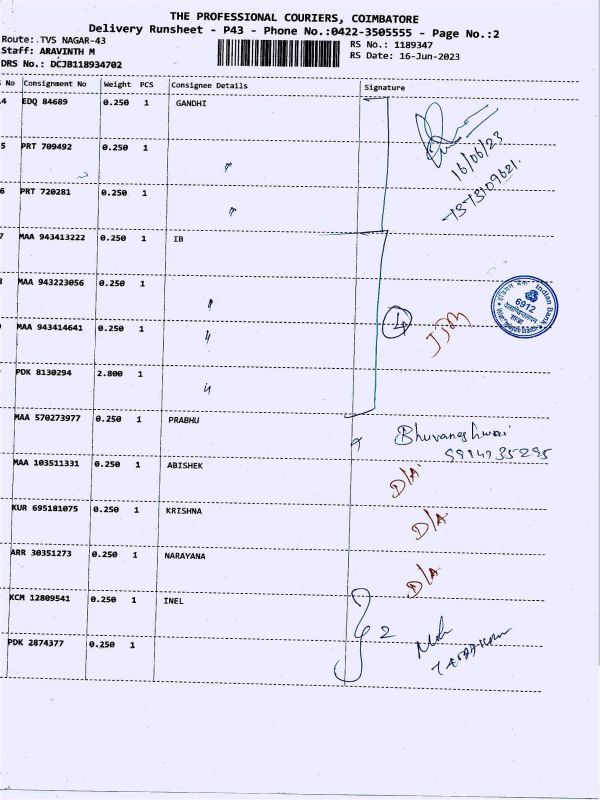 THE PROFESSIONAL COURIERS, COIMBATORE
Delivery Runsheet - P43 - Phone No.:0422-3505555 - Page No.:2
Route: TVS NAGAR-43
RS No.: 1189347
Staff: ARAVINTH M
RS Date: 16-Jun-2023
DRS No.: DCJB118934702
No Consignment No Weight PCS Consignee Details Signature
4 EDQ 84689 0.250 1 GANDHI
16/06/23
5 PRT 709492 0.250 1 〃
6 PRT 720281 0.250 1 〃
7 MAA 943413222 0.250 1 IB
MAA 943223056 0.250 1 〃
Indian Bank
6912
MAA 943414641 0.250 1 〃
4
PDK 8130294 2.800 1 〃
MAA 570273977 0.250 1 PRABHU
Bhuvaneshwari
MAA 103511331 0.250 1 ABISHEK D/A
KUR 695181075 0.250 1 KRISHNA D/A
ARR 30351273 0.250 1 NARAYANA D/A
KCM 12809541 0.250 1 INEL
2
PDK 2874377 0.250 1